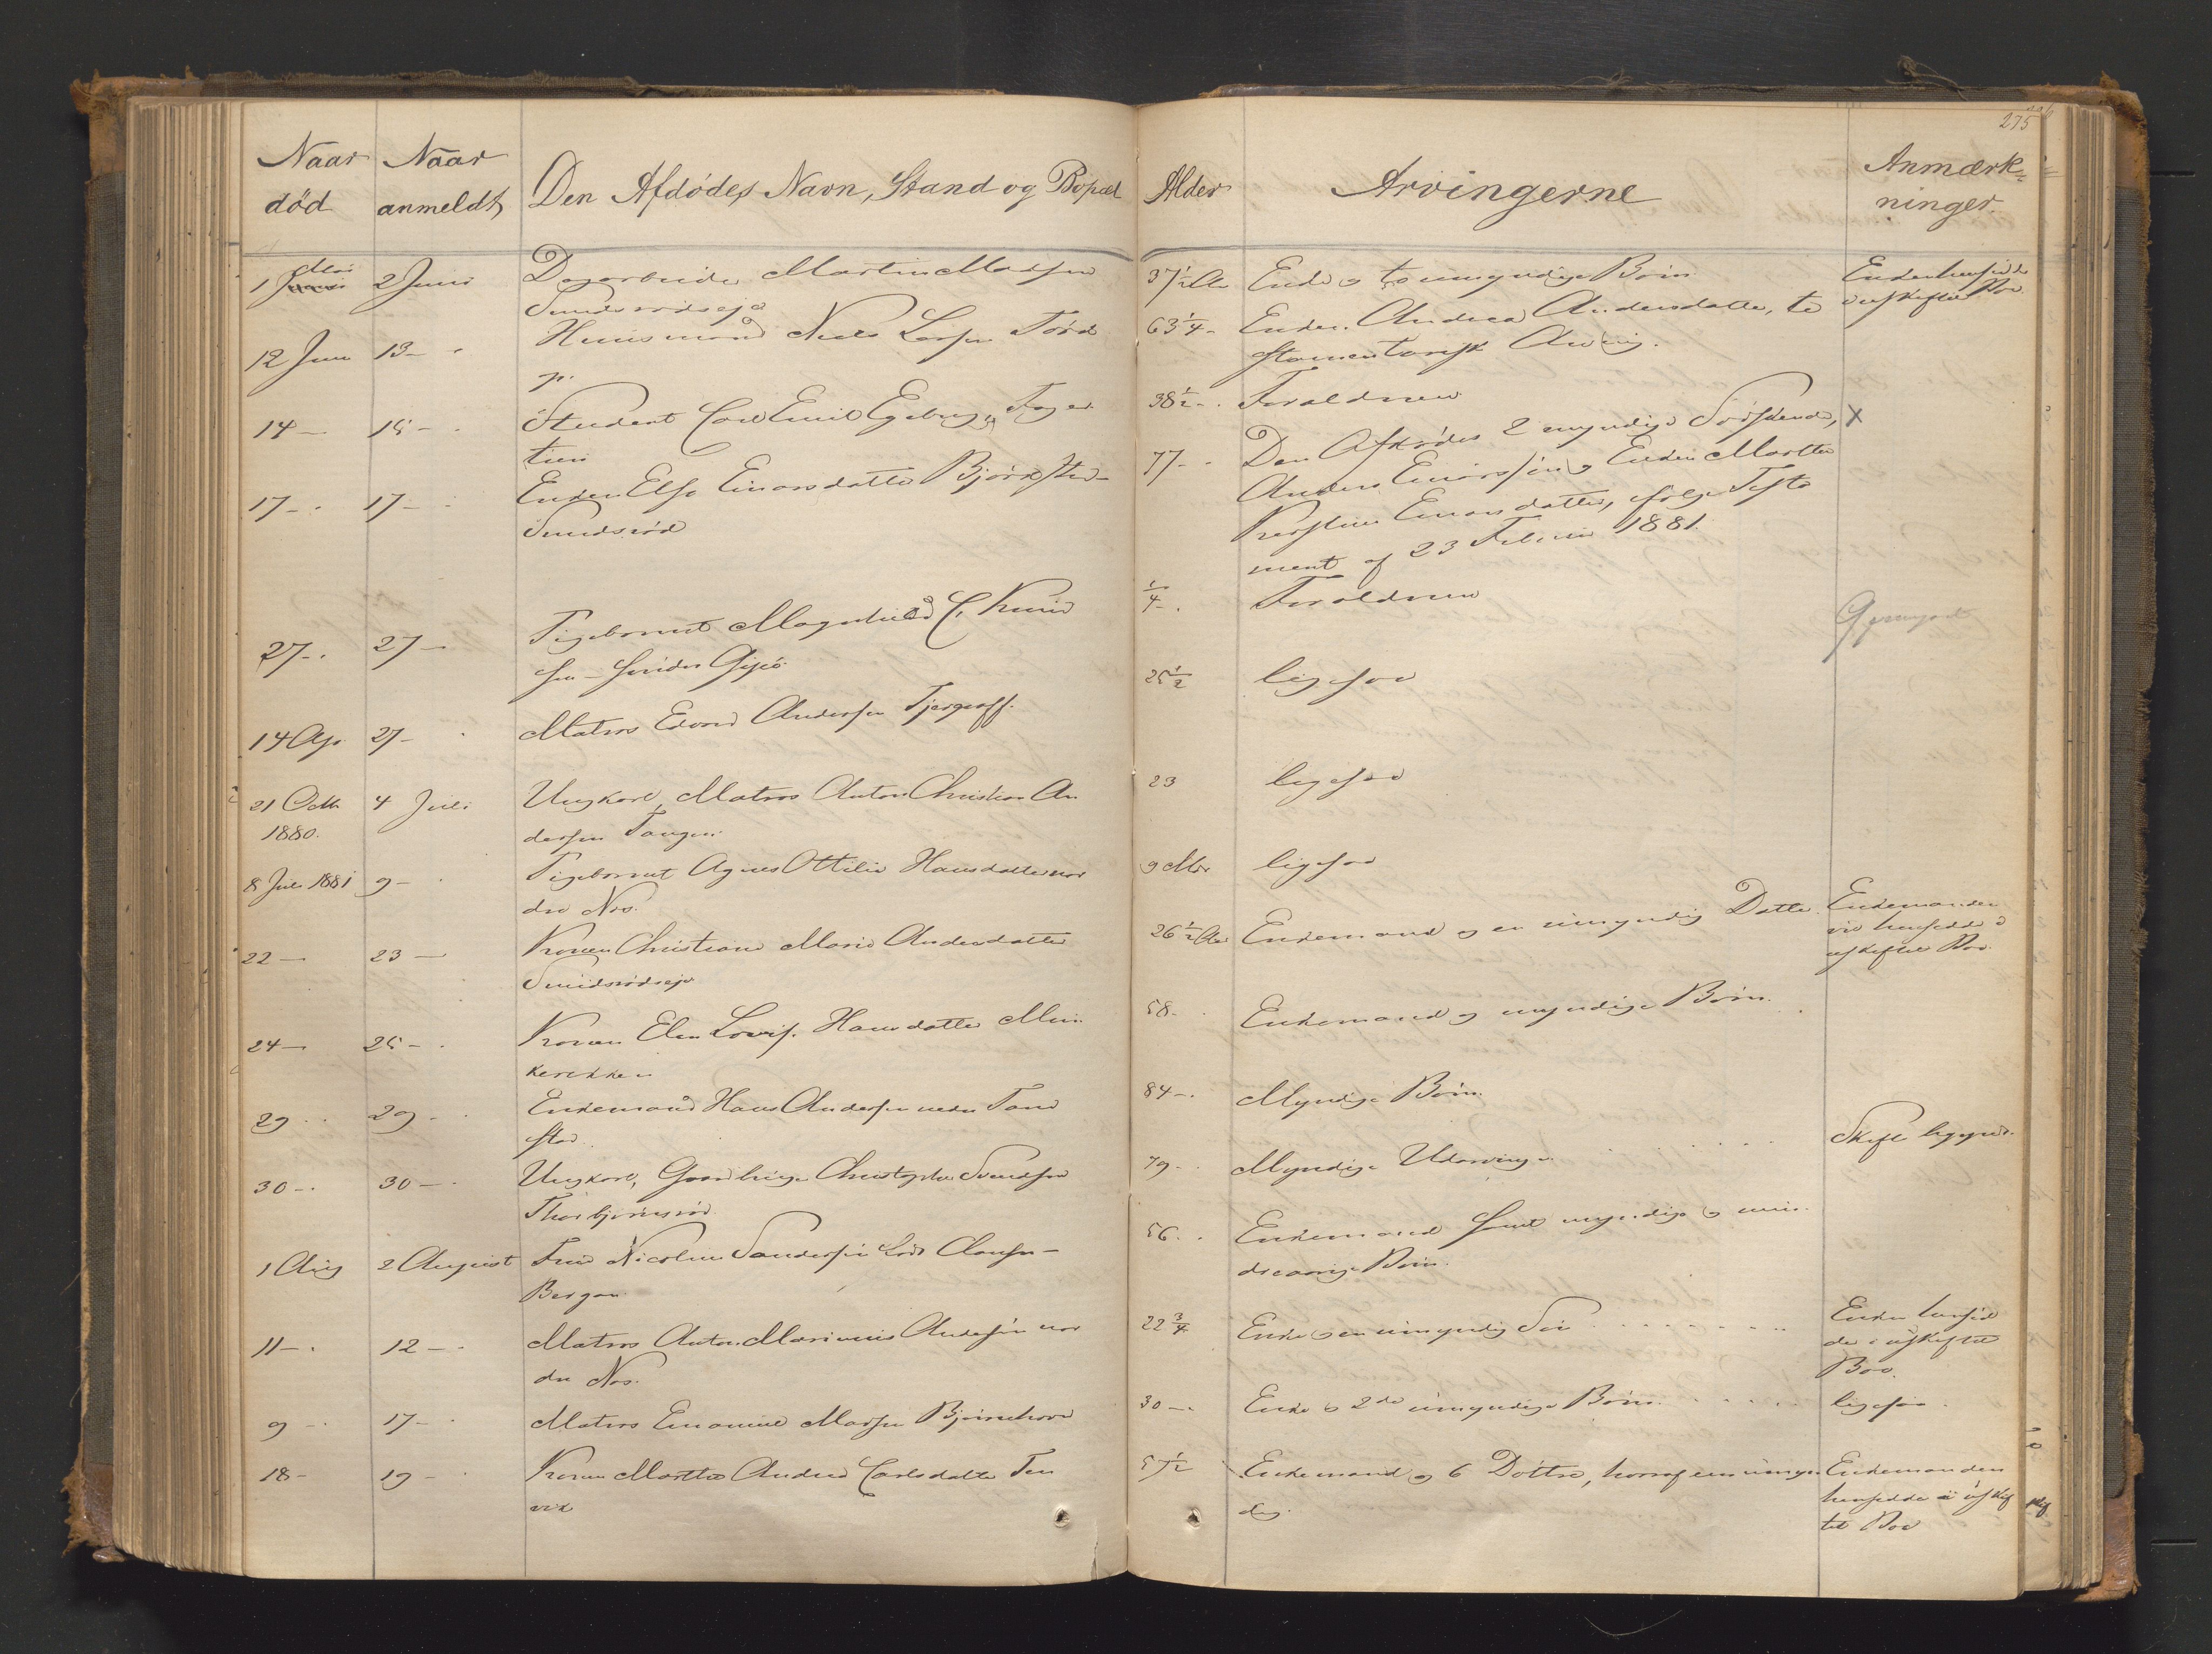 275
Naar død
Naar anmeldt
Den Afdødes Navn, Stand og Bopæl
Alder
Arvingerne
Anmærk=
ninger.
1 Juni Mai
2 Juni
Dagarbeider Martin Madsen
Sundsrødseje
37 1/2 Aar
Enke og to umyndige Børn
Enken hensidder
i uskiftet Bo
12 Juni
13 -
Huusmand Niels Larsen Tørd
p.
63 1/4 -
Enken Andrea Andersdatter, te
stamentarisk Arving.
14 -
15 -
Student Carl Emil Egeberg, Fager
tun
38 1/2 -
Forældrene
17 -
17 -
Enken Else Einarsdatter Bjørksten-
Sundsrød
77 -
Den Afdødes 2 myndige Søskende,
Anders Einarssøn og Enken Marthe
Kirstine Einarsdatter, følge Testa
ment af 23 Februar 1881.
X
27 -
27 -
Pigebarnet Magnhild C. Knud
sen - søndre Gipø
1/4 -
Forældrene
Gjenpart
14 Apr
27 -
Matros Edvard Andersen
25 1/2
ligesaa
21 Octb
1880.
4 Juli
Ungkarl, Matros Anton Christian An
dersen Tangen
23
ligesaa
8 Juli 1881
9 -
Pigebarnet Agnes Ottilie Hansdatter nor
dre Nes.
9 Mdr
ligesaa
22 -
23 -
Konen Christiane Marie Andersdatter
Sundsrødseje
26 1/2 Aar
Enkemand og en umyndig Datter.
Enkemanden
vil hensidde i
uskiftet Bo.
24 -
25 -
Konen Elen Lovise Hansdatter Mun
kerekken
58 -
Enkemand og myndige Børn.
29 -
29 -
Enkemand Hans Andersen nedre Tand
stad.
84 -
Myndige Børn.
30 -
30 -
Ungkarl, Gaardbruger Christopher Svendsen
Thorbjørnsrød
79 -
Myndige Udarvinger
Skifte begjæret.
1 Aug
2 August
Fru Nicoline Sandersine Lods Clausen -
Bergan
56 -
Enkemand samt myndige og min
dreaarige Børn.
11 -
12 -
Matros Anton Marinius Andersen nor
dre Nes.
22 3/4
Enke og en umyndig Søn
Enken hensid
der i uskiftet
Bo.
9 -
17 -
Matros Emanuel Madsen Bjørnehove
30 -
Enke og 2de umyndige Børn.
ligesaa.
18 -
19 -
Konen Marthe Andrea Carlsdatter Ten
vik
57 1/2
Enkemand og 6 Døttre, hvoraf een umyn
dig.
Enkemanden
hensidder i uskif
tet Bo